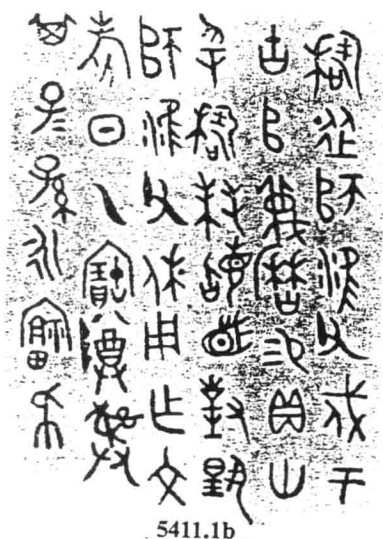 稆從師淮父戍于
古𠂤蔑曆易貝卅
寽稆拜𩒨首對揚
師淮父休用乍文
考日乙寶尊彝
其子子孫永福
5411.1b